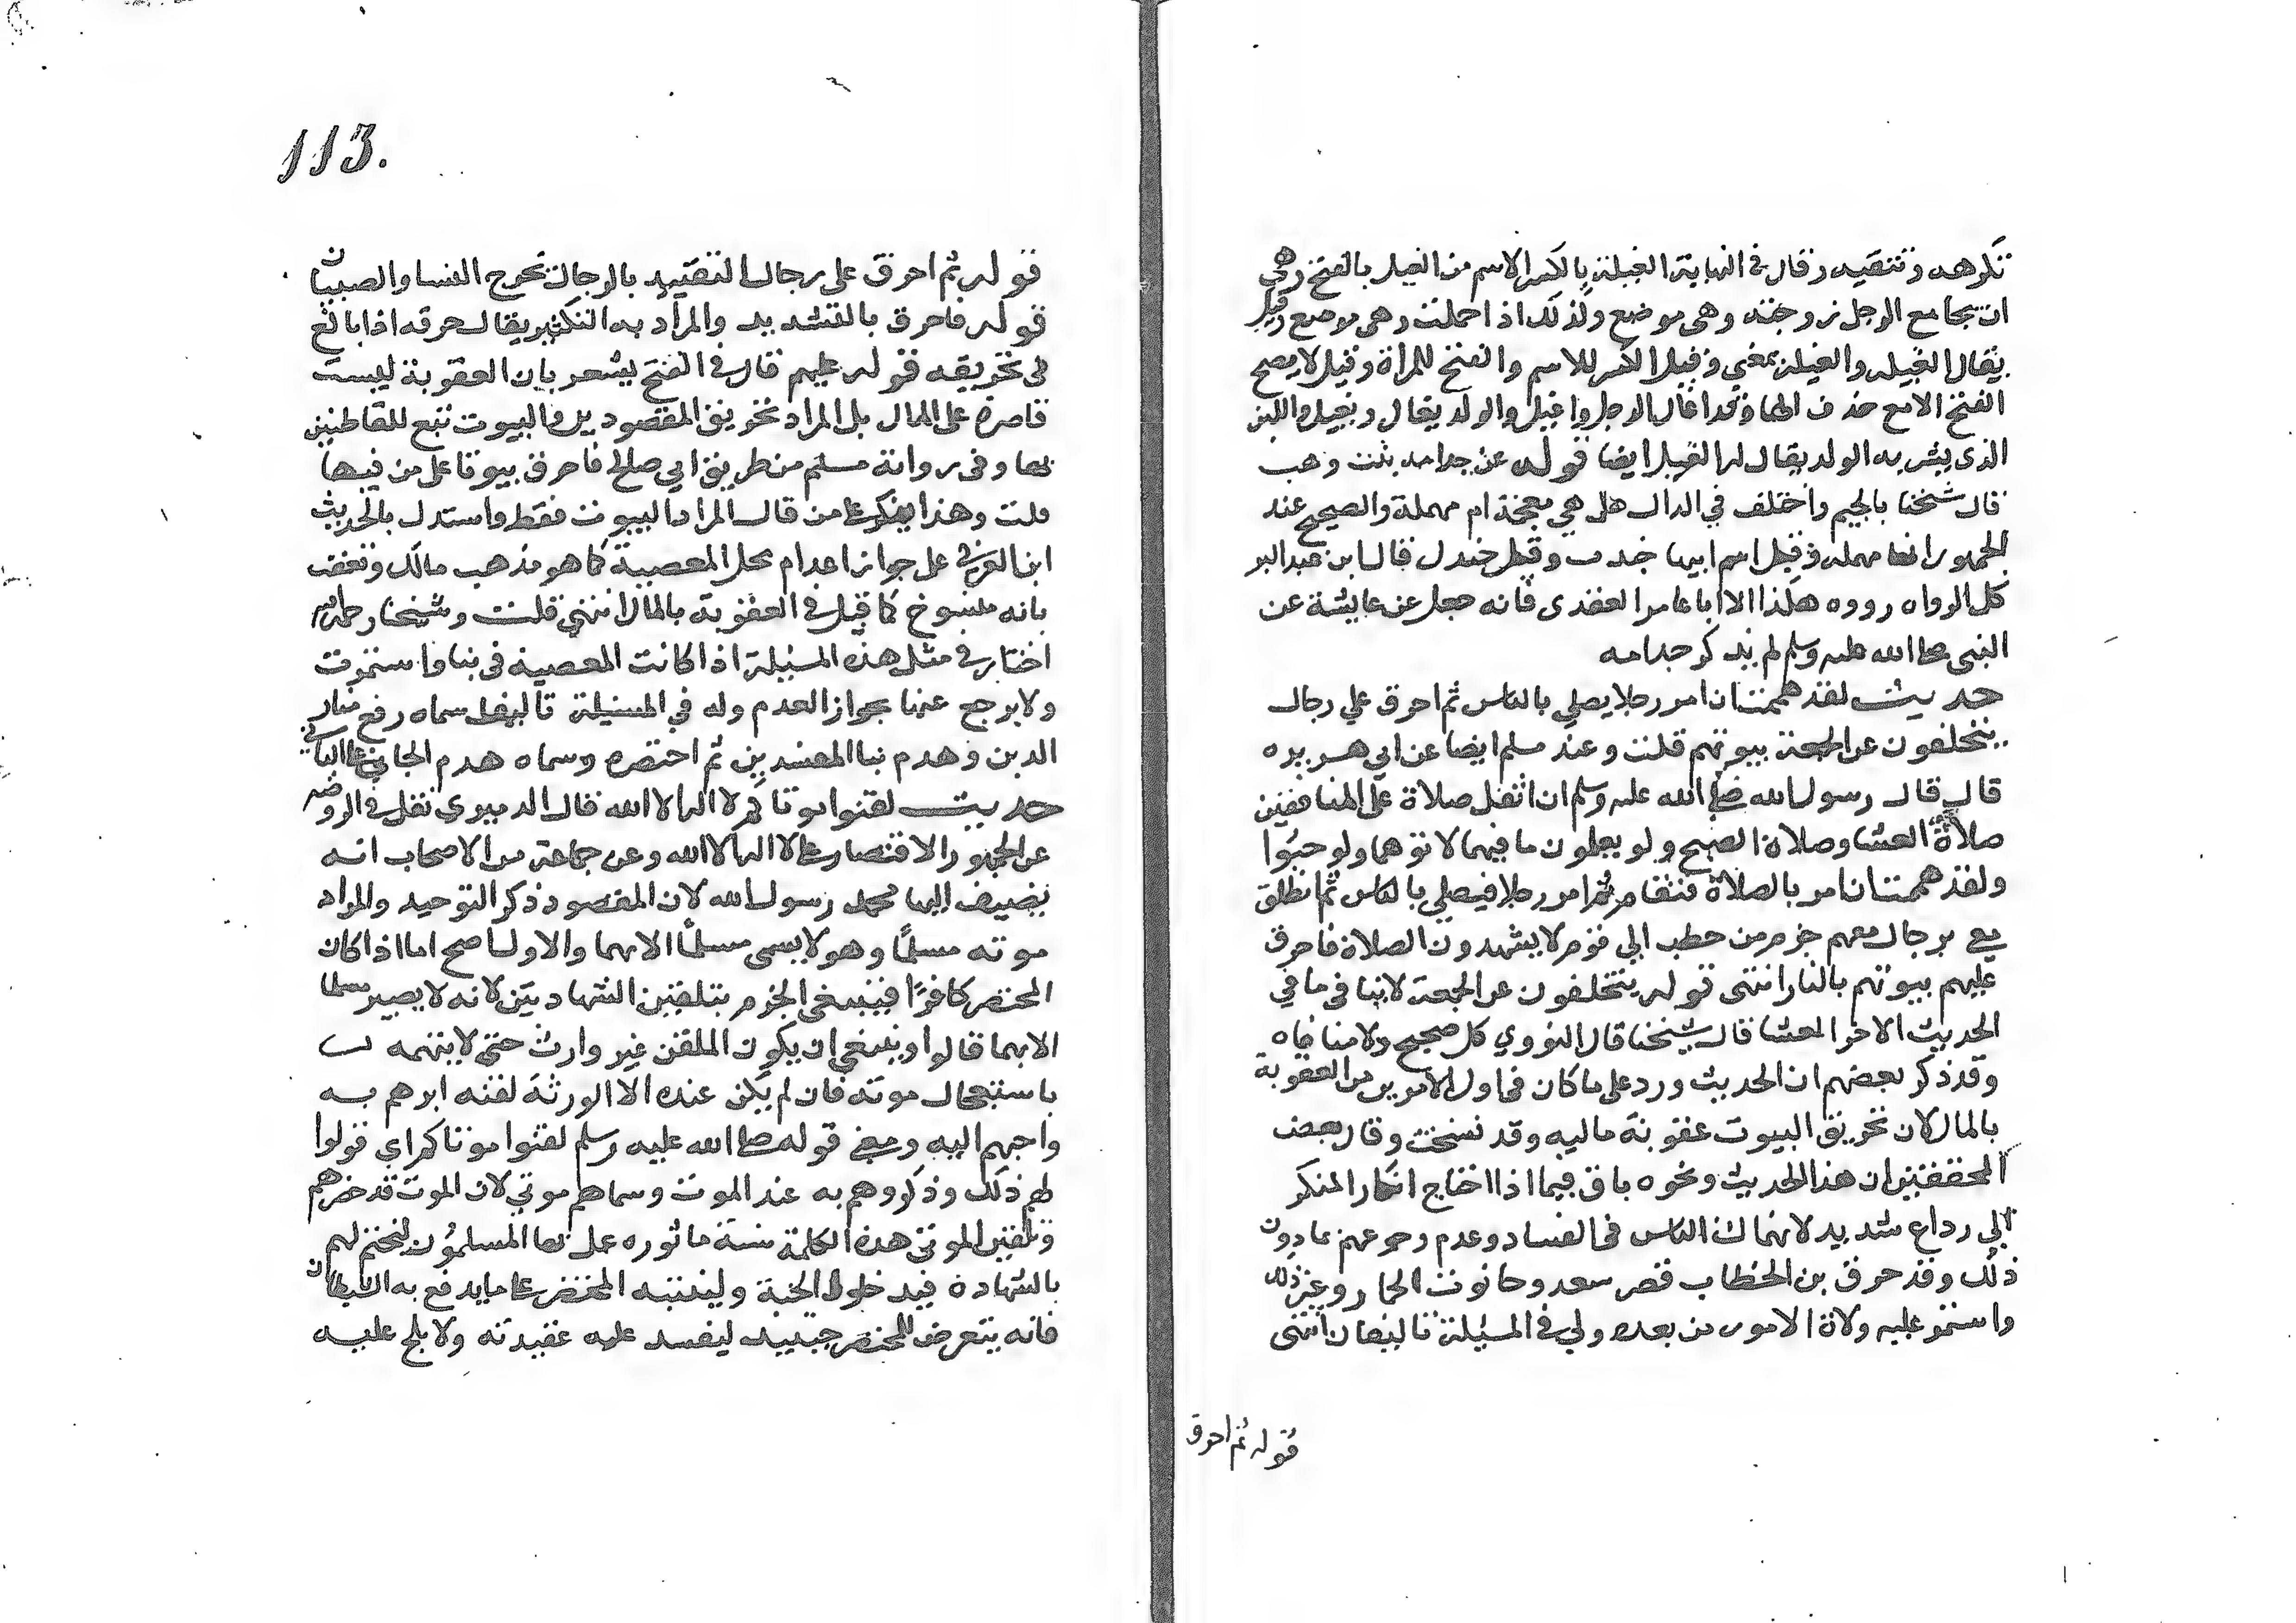 تكرهه وتتقيه وقال في النهاية الغيلة بالكسر الاسم من الغيل بالفتح وهي
ان يجامع الرجل زوجته وهي موضع ولذلك اذا حملت وهي موضع وقيل
يقال الغيله والغيلة بمعني وقيل الكسر للاسم والفتح للمرأة وقيل لا يصح
الفتح الا مع حذف الها وقد اغال الرجل واغيل والولد يقال واللبن
الذي يشربه الولد يقال له الغيل ايضا قوله عن جدامه بنت وهب
قال شيخنا بالجيم واختلف في الدال هل هي معجمة ام مهملة والصحيح عند
الجمهور انها مهمله وقيل اسم ابيها جندب وقيل جندل قال ابن عبد البر
كل الرواه رووه هكذا الا ابا عامر العقدي فانه جعل عن عايشة عن
النبي صلى الله عليه وسلم لم يذكر جدامه
حديث لقد هممت ان امر رجلا يصلي بالناس ثم احرق علي رجال
يتخلفون عن الجمعة بيوتهم قلت وعند مسلم ايضا عن ابي هريره
قال قال رسول الله صلى الله عليه وسلم ان اثقل صلاة على المنافقين
صلاة العشا وصلاة الصبح ولو يعلمون ما فيهما لاتوهما ولو حبوا
ولقد هممت ان امر بالصلاة فتقام ثم امر رجلا فيصلي بالناس ثم انطلق
معي برجال معهم حزم من حطب الي قوم لا يشهدون الصلاة فاحرق
عليهم بيوتهم بالنار انتهى قوله يتخلفون عن الجمعة لا ينافي ما في
الحديث الاخر العشا قال شيخنا قال النووي كل صحيح ولا منافاه
وقد ذكر بعضهم ان الحديث ورد على ما كان في اول الامر من العقوبة
بالمال لان تحريق البيوت عقوبة ماليه وقد نسخت وقال بعض
المحققين ان هذا الحديث ونحوه باق فيما اذا احتاج انكار المنكر
الي رداع شديد لانهماك الناس في الفساد وعدم رجوعهم بما دون
ذلك وقد حرق بن الخطاب قصر سعد وحانوت الخمار وغير ذلك
واستمر عليه ولاة الامور من بعده ولي في المسئلة تاليفان انتهى
قوله ثم احرق
113.
قوله ثم احرق على رجال التقييد بالرجال تخرج النسا والصبيان
قوله فاحرق بالتشديد والمراد به التكثير يقال حرقه اذا بالغ
في تحريقه قوله عليهم قال في الفتح يشعر بان العقوبة ليست
قاصرة على المال بل المراد تحريق المقصودين والبيوت تبع للقاطنين
بها وفي رواية مسلم من طريق ابي صالح فاحرق بيوتا على من فيها
قلت وهذا يعكر على من قال المراد البيوت فقط واستدل بالحديث
ابن العربي على جواز اعدام محل المعصية كما هو مذهب مالك وتعقب
بانه منسوخ كما قيل في العقوبة بالمال انتهي قلت وشيخنا رحمه الله
اختار في مثل هذه المسئلة اذا كانت المعصية في بنا واستمرت
ولا يرجع عنها بجواز الهدم وله في المسئلة تاليف سماه رفع منار
الدين وهدم بنا المفسدين ثم اختصره وسماه هدم الجاني على الباني
حديث لقنوا موتاكم لا اله الا الله قال الدميري نقل في الروضه
عن الجمهور الاقتصار على لا اله الا الله وعن جماعة من الاصحاب انه
يضيف اليها محمد رسول الله لان المقصود ذكر التوحيد والمراد
موته مسلما وهو لا يسمى مسلما الا بهما والاول اصح اما اذا كان
المحتضر كافرا فينبغي الجزم بتلقين الشهادتين لانه لا يصير مسلما
الا بهما قالوا وينبغي ان يكون الملقن غير وارث حتى لا يتهمه
باستعجال موته فان لم يكن عنده الا الورثة لقنه ابرهم به
واحبهم اليه ومعني قوله صلى الله عليه وسلم لقنوا موتاكم اي قولوا
لهم ذلك وذكروهم به عند الموت وسماهم موتي لان الموت قد حضرهم
وتلقين الموتى هذه الكلمة سنة ماثوره عمل بها المسلمون ليختم لهم
بالشهادة فيدخلوا الجنة ولينتبه المحتضر على ما يدفع به الشيطان
فانه يتعرض للمحتضر حينيد ليفسد عليه عقيدته ولا يلح عليه